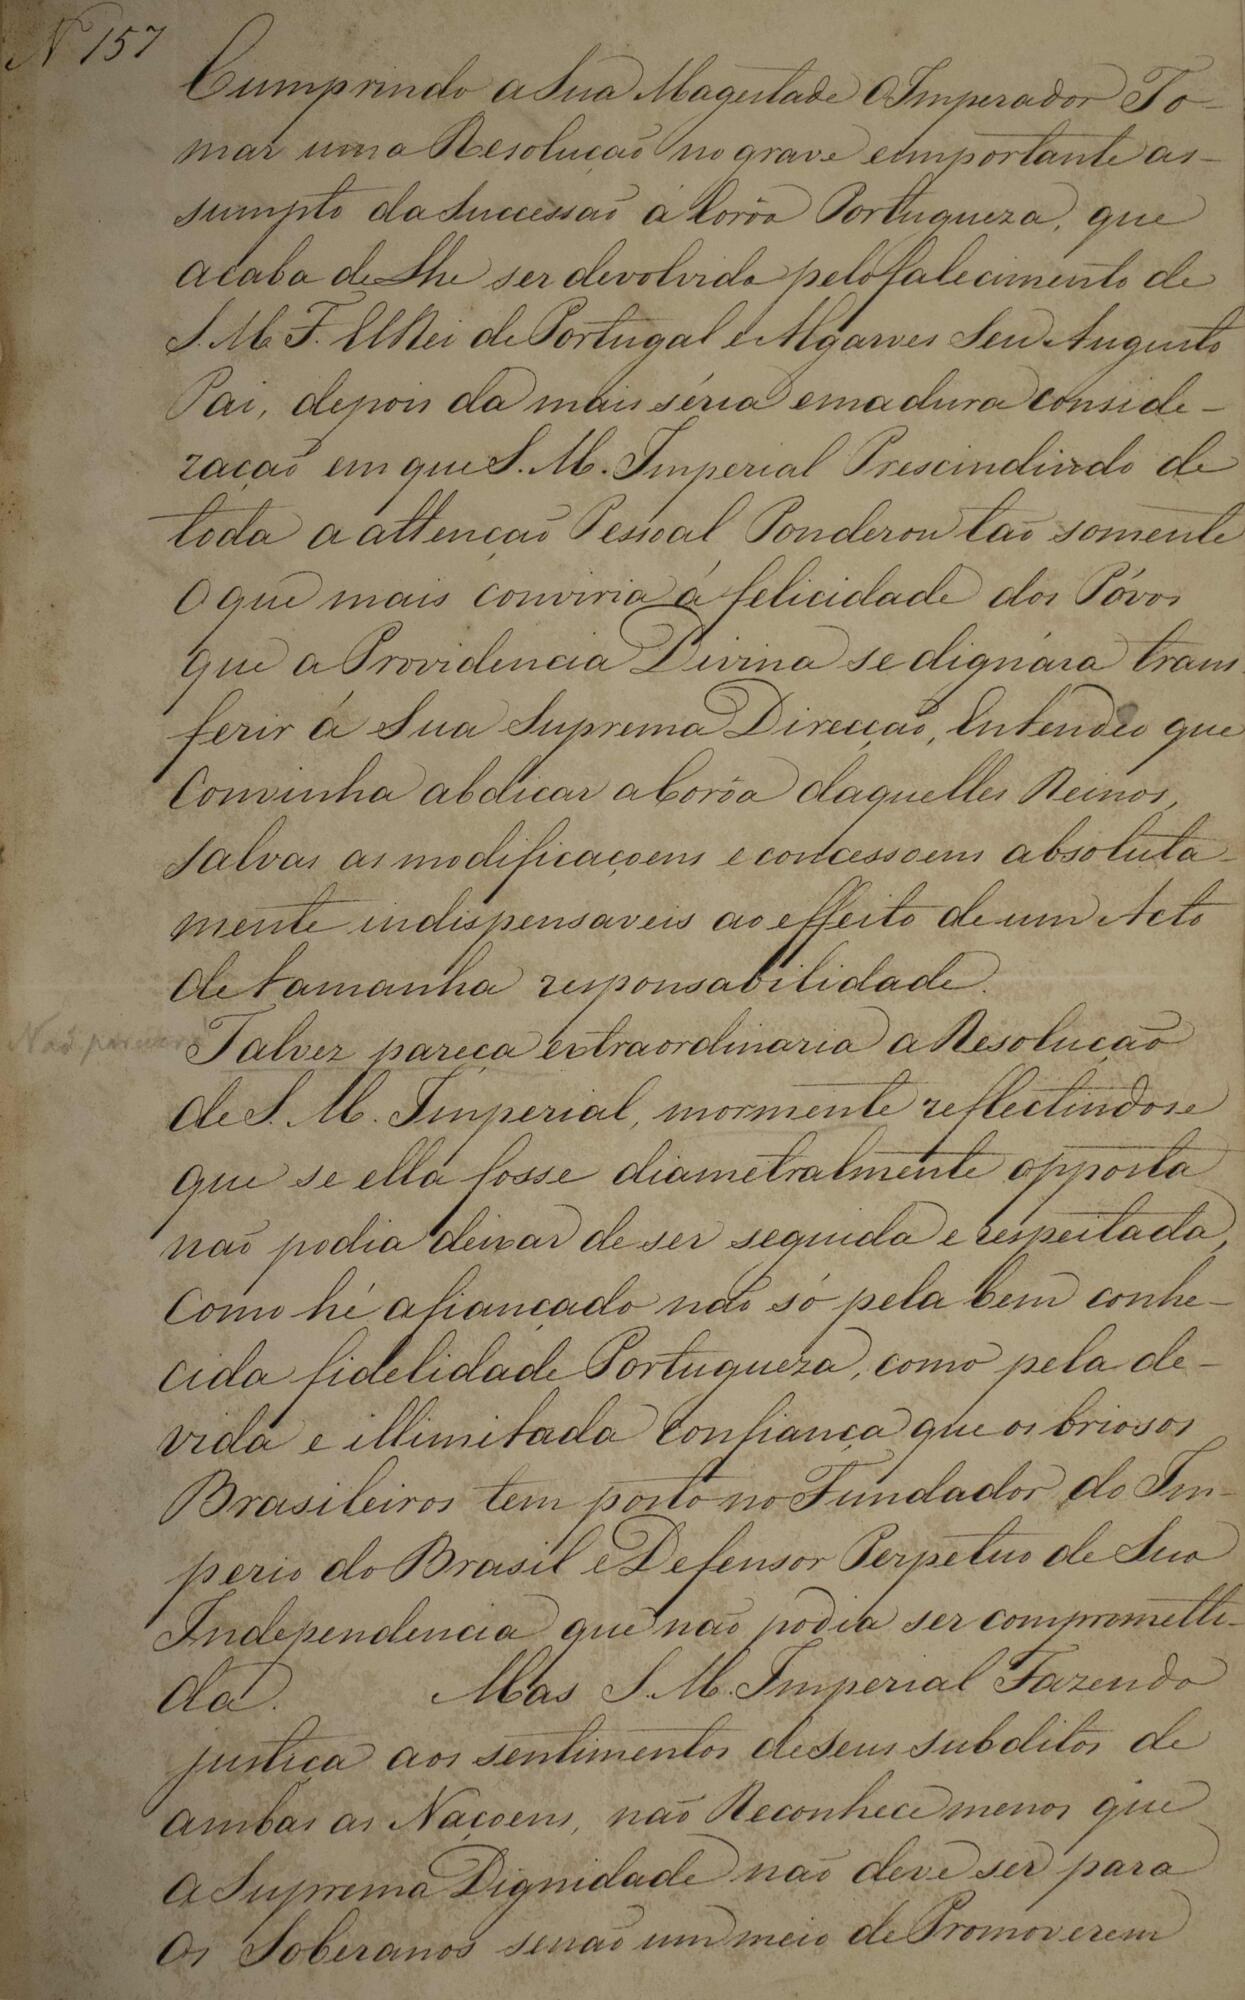 N 157
Cumprindo a Sua Magestade O Imperador To-
mar uma Resolução no grave e importante as-
sumpto da Successaõ á Corôa Portugueza, que
acaba de Lhe ser devolvida pelo falecimento de
S. M. F. ElRei de Portugal e Algarves Seu Augusto
Pai, depois da mais séria e madura conside-
raçaõ em que S. M. Imperial Prescindindo de
toda a attençaõ Pessoal Ponderou taõ somente
O que mais conviria á felicidade dos Póvos
que a Providencia Divina se dignára trans-
ferir á Sua Suprema Direcçaõ, Entendeo que
Convinha abdicar a Corôa daquelles Reinos,
salvas as modificaçoens e concessoens absoluta-
mente indispensaveis ao effeito de um Acto
de tamanha responsabilidade.
Naõ
Talvez pareça extraordinaria a Resoluçaõ
de S. M. Imperial, mormente reflectindose
que se ella fosse diametralmente opposta
naõ podia deixar de ser seguida e respeitada,
Como hé afiançado naõ só pela bem conhe-
cida fidelidade Portugueza, como pela de-
vida e illimitada confiança que os briosos
Brasileiros tem posto no Fundador do Im-
perio do Brasil e Defensor Perpetuo de Sua
Independencia que naõ podia ser compromетti-
da. Mas S. M. Imperial Fazendo
justiça aos sentimentos de seus subditos de
ambas as Naçoens, naõ Reconhece menos que
a Suprema Dignidade naõ deve ser para
Os Soberanos senaõ um meio de Promoverem